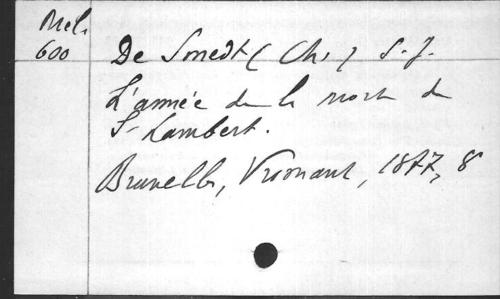 Mel.
600
De Smedt (Ch.) S.J.
L'année de la mort de
St Lambert.
Bruxelles, Vromant, 1877, 8